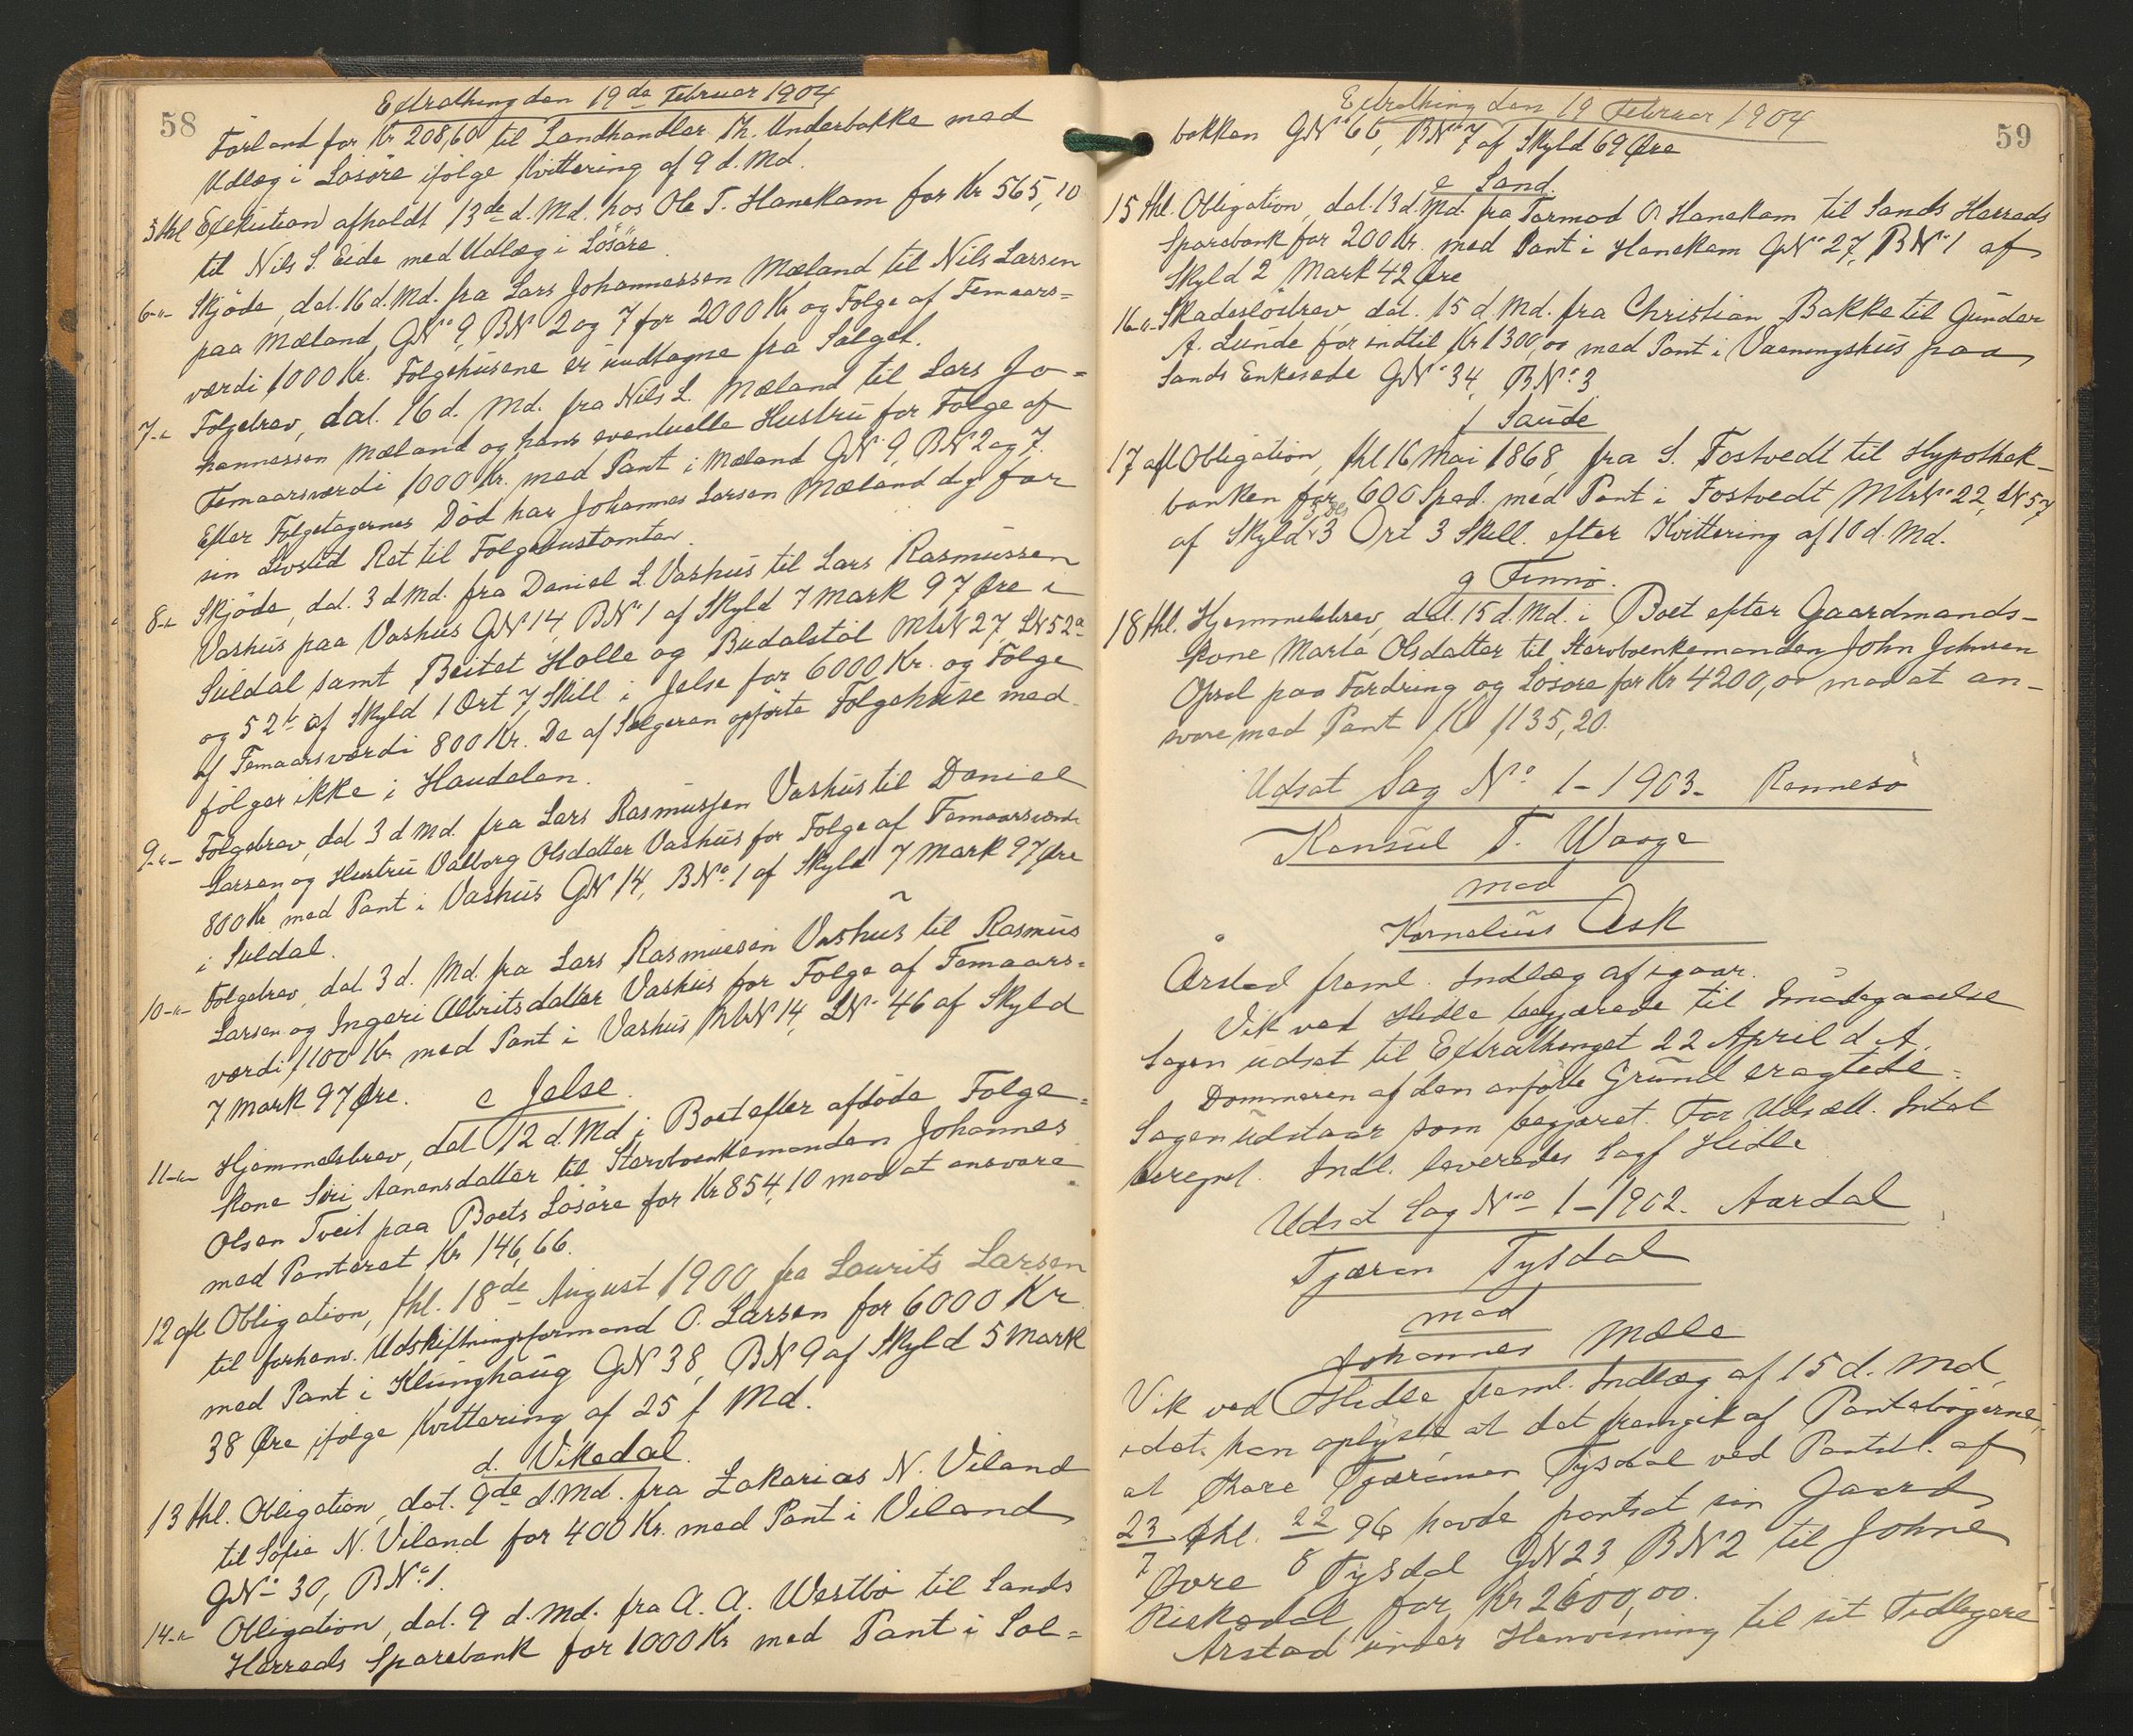 58
Extrathing den 19de Februar 1904
Førland for Kr 208,60 til Landhandler Th. Underbakke med
Udlæg i Løsøre ifølge Kvittering af 9 d. Md.
5 thl Exekution afholdt 13de d. Md. hos Ole T. Hanekam for Kr 565,10
til Nils S. Eide med Udlæg i Løsøre.
6-"- Skjøde, dat. 16 d. Md. fra Lars Johannessen Mæland til Nils Larsen
paa Mæland, GN° 9, BN 2 og 7 for 2000 Kr og Følge af Femaars=
værdi 1000 Kr. Følgehusene er undtagne fra Salget.
7-"- Følgebrev, dat. 16 d. Md. fra Nils L. Mæland til Lars Jo=
hannessen Mæland og hans eventuelle Hustru for Følge af
Femaarsværdi 1000 Kr. med Pant i Mæland GN 9, BN 2 og 7.
Efter Følgetagernes Død har Johannes Larsen Mæland dy for
sin Livstid Ret til Følgehustomter.
8-"- Skjøde, dat. 3 d Md. fra Daniel L. Vashus til Lars Rasmussen
Vashus paa Vashus GN 14, BN° 1 af Skyld 7 Mark 97 Øre i
Suldal samt Beitet Holle og Budalstøl MN 27, LN 52a
og 52b af Skyld 1 Ort 7 Skill i Jelse for 6000 Kr. og Følge
af Femaarsværdi 800 Kr. De af Sælgeren opførte Følgehuse med
følger ikke i Handelen.
9-"- Følgebrev, dat 3 d Md. fra Lars Rasmussen Vashus til Daniel
Larsen og Hustru Valborg Olsdatter Vashus for Følge af Femaarsværdi
800 Kr med Pant i Vashus GN 14, BN° 1 af Skyld 7 Mark 97 Øre
i Suldal.
10-"- Følgebrev, dat 3 d. Md. fra Lars Rasmussen Vashus til Rasmus
Larsen og Ingeri Albritsdatter Vashus for Følge af Femaars=
værdi 1100 Kr. med Pant i Vashus MN 14, LN 46 af Skyld
7 Mark 97 Øre.
c Jelse.
11-"- Hjemmelsbrev, dat 12 d. Md i Boet efter afdøde Følge=
kone Siri Aanensdatter til Stervboenkemanden Johannes
Olsen Tveit paa Boets Løsøre for Kr 854,10 mod at ansvare
med Panteret Kr 146,66.
12 afl Obligation, thl. 18de August 1900 fra Laurits Larsen
til forhenv. Udskiftningsformand O. Larsen for 6000 Kr.
med Pant i Klunghaug GN 38, BN 9 af Skyld 5 Mark
38 Øre ifølge Kvittering af 25 f Md.
d. Vikedal.
13 thl. Obligation, dat. 9de d. Md. fra Zakarias N. Viland
til Sofie N. Viland for 400 Kr. med Pant i Viland
GN° 30, BN° 1.
14-"- Obligation, dat. 9 d. Md. fra A. A. Westbø til Sands
Herreds Sparebank for 1000 Kr med Pant i Sol=
59
Extrathing den 19 Februar 1904
bakken GN° 66, BN° 7 af Skyld 69 Øre
e Sand.
15 thl. Obligation, dat. 13 d. Md. fra Tormod O Hanekam til Sands Herreds
Sparebank for 200 Kr. med Pant i Hanekam GN° 27, BN° 1 af
Skyld 2 Mark 42 Øre
16-"- Skadesløsbrev, dat. 15 d. Md. fra Christian Bakke til Gunder
A. Lunde for indtil Kr 1300,00 med Pant i Vaaningshus paa
Sands Enkesæde GN° 34, BN° 3
f Saude
17 afl Obligation, thl 16 Mai 1868, fra S. Fostvedt til Hypothek-
banken for 600 Spd. med Pant i Fostvedt MtrN° 22, LN 57
af Skyld 3 Ort 3 Skill. efter Kvittering af 10 d. Md.
g Finnø.
18 thl. Hjemmelsbrev, dat. 15 d. Md. i Boet efter Gaardmands-
kone Marta Olsdatter til Stervboenkemanden John Johnsen
Opsal paa Fordring og Løsøre for Kr 4200,00 mod at an-
svare med Pant Kr 1135,20.
Udsat Sag N° 1-1903. Rennesø
Konsul T. Waage
mod
Kornelius Ask
Årstad freml. Indlæg af igaar.
Vik ved Hidle begjærede til Imødegaaelse
Sagen udsat til Extrathinget 22 April d. A.
Dommeren af den anførte Grund eragtede:
Sagen udstaar som begjæret. For Udsætt. Intet
beregnet. Indl. leveredes Sagf Hidle
Udsat Sag N° 1-1902. Aardal
Tjæran Tysdal
mod
Johannes Mæle
Vik ved Hidle freml. Indlæg af 15 d. Md,
idet han oplyste at det fremgik af Pantebøgerne,
at Kare Tjæransen Tysdal ved Pantobl. af
23/7 thl. 22/8 96 havde pantsat sin Gaard
Øvre Tysdal GN 23 BN 2 til Johne
Riskedal for Kr 2600,00.
Årstad under Henvisning til sit Tidligere